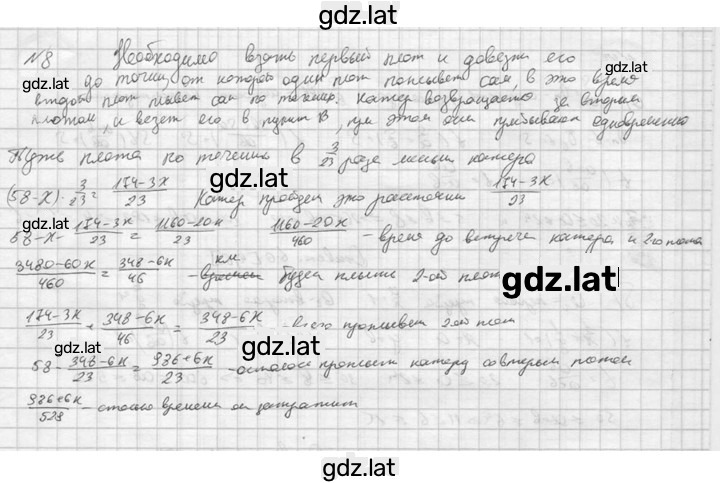 gdz.lat
№8 Необходимо взять первый плот и довезти его
gdz.lat
до точки, от которой один плот поплывет сам, в это время
второй плот плывет сам по течению. Катер возвращается за вторым
плотом, и везет его в пункт В, при этом они прибывают одновременно
gdz.lat
Путь плота по течению в 3/23 раза меньше катера
gdz.lat
(58-x)·3/23 = (174-3x)/23 Катер пройдет это расстояние (174-3x)/23
58-x-(174-3x)/23 = (1160-20x)/23 (1160-20x)/460 - время до встречи катера и 2го плота
gdz.lat
(3480-60x)/460 = (348-6x)/46 км - будет плыть 2-ой плот
gdz.lat
(174-3x)/23 + (348-6x)/46 = (348-6x)/23 - всего проплывет 2-ой плот
gdz.lat
58-(348-6x)/23 = (986+6x)/23 - осталось проплыть катеру со вторым плотом
gdz.lat
(986+6x)/528 - столько времени он затратит
gdz.lat
gdz.lat